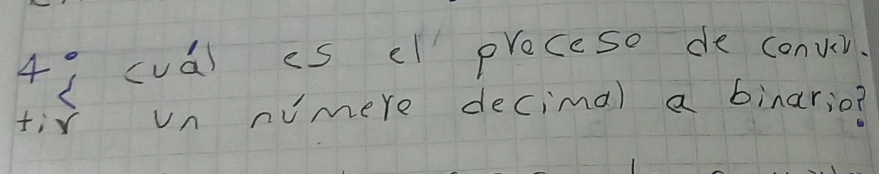 4¿ cuál es el proceso de conver-
tir un número decimal a binario?